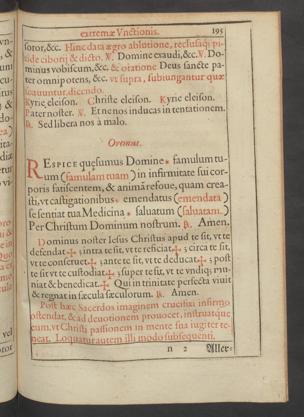 extremæ Vnctionis. 195
soror, &c. Hinc data ægro ablutione, reclusaq; pi-
xide ciborij & dicto. V. Domine exaudi, &c. V. Do-
minus vobiscum, &c. & oratione Deus sancte pa-
ter omnipotens, &c. vt supra, subiungantur quæ
sequuntur, dicendo.
Kyrie eleison. Christe eleison. Kyrie eleison.
Pater noster. V. Et ne nos inducas in tentationem.
R. Sed libera nos à malo.
Oremus.
RESPICE quęsumus Domine famulum tu-
um (famulam tuam) in infirmitate sui cor-
poris fatiscentem, & animā refoue, quam crea-
sti, vt castigationibus emendatus (emendata)
se sentiat tua Medicina saluatum (saluatam.)
Per Christum Dominum nostrum. R. Amen.
Dominus noster Iesus Christus apud te sit, vt te
defendat ✠ : intra te sit, vt te reficiat ✠ : circa te sit,
vt te conseruet ✠ : ante te sit, vt te deducat ✠ : post
te sit vt te custodiat ✠ : super te sit, vt te vndiq; mu-
niat & benedicat ✠. Qui in trinitate perfecta viuit
& regnat in sæcula sæculorum. R. Amen.
Post hæc Sacerdos imaginem crucifixi infirmo
ostendat, & ad deuotionem prouocet, instruatque
eum, vt Christi passionem in mente sua iugiter re-
neat. Loquatur autem illi modo subsequenti.
n 2 Aller-